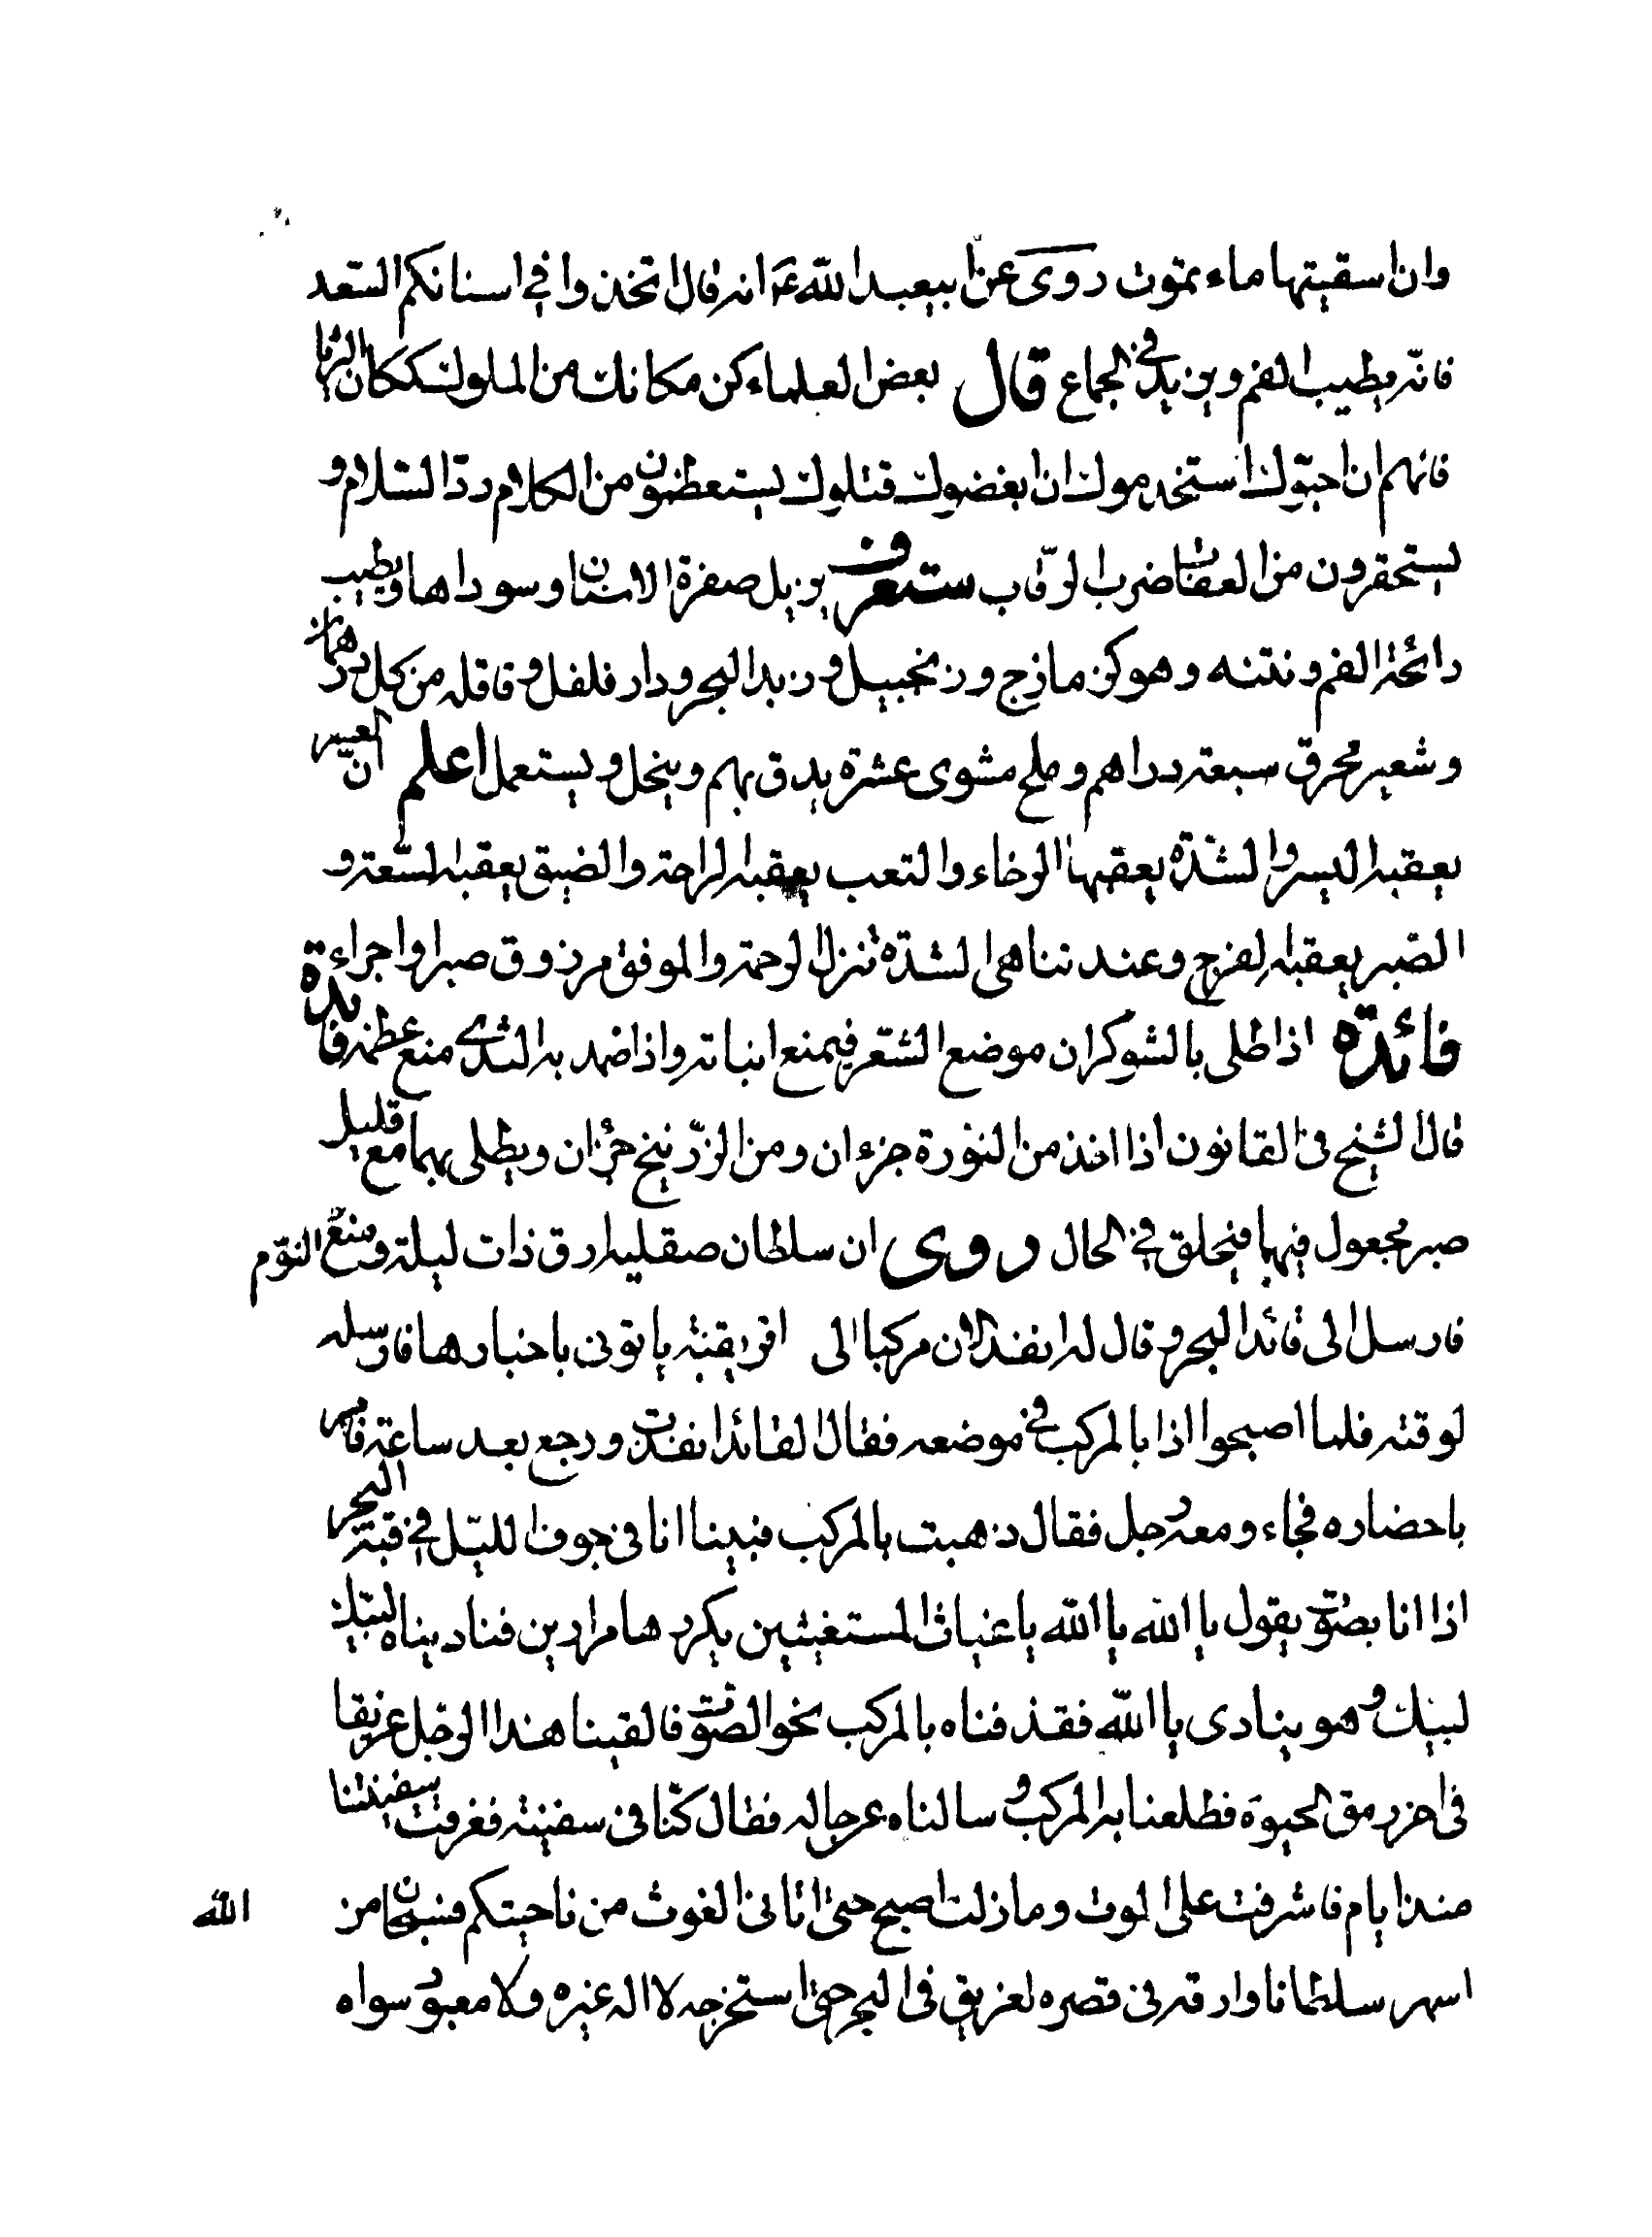 وان اسقيتها ماء تموت روى عن ابيعبد الله ع انه قال اتخذوا في اسنانكم السّعد
فانّه يطيب الفم ويزيد في الجماع قال بعض العلماء كن مكانك من الملوك ككان الثريا
فانهم ان احبّوك استخدموك ان ابغضوك قتلوك يستعظمون من الكلام ردّ السّلام و
يستحقرون من العقاب ضرب الرّقاب سنون يزيل صفرة الاسنان وسوداها ويطيب
رائحة الفم ونتنه وهو كزمازج وزنجبيل وزبد البحر ودار فلفل وقاقله من كل درهمان
وشعير محرق سبعة دراهم وملح مشوى عشرة يدق بهم وينخل ويستعمل اعلم ان العسر
يعقبه اليسر والشدّة يعقبها الرخاء والتعب يعقبه الراحة والضيق يعقبه السّعة و
الصّبر يعقبه الفرج وعند تناهى الشدّة تنزل الرحمة والموفق مرزوق صبرا واجراء
فائدة اذا طلى بالشوكران موضع الشّعر فيمنع انباته واذا ضمد به الثدى منع عظمه فائدة
قال الشيخ في القانون اذا اخذ من النّورة جزءان ومن الزّرنيخ جزءان ويطلى بهما مع قليل
صبر مجعول فيهما فيحلق في الحال روى ان سلطان صقليه ارق ذات ليلة ومنع النّوم
فارسل الى قائد البحر وقال له انفذ الان مركبا الى افريقية ياتونى باخبارها فارسله
لوقته فلما اصبحوا اذا بالمركب في موضعه فقال القائد انفذت ورجع بعد ساعة فامر
باحضاره فجاء ومعه رجل فقال ذهبت بالمركب فبينا انا في جوف الليّل في قبة البحر
اذا انا بصوّت يقول يا الله يا الله يا غياث المستغيثين يكررها مرارا ين فناديناه لبيّك
لبيك وهو ينادى يا الله فقذفناه بالمركب نحو الصّوت فالقينا هذا الرّجل غريقا
في اخر رمق الحيوة فطلعنا به المركب و سالناه عن حاله فقال كنّا في سفينة فغرقت سفينتنا
منذ ايام فاشرفت على الموت وما زلت اصيح حتى اتانى الغوث من ناحيتكم فسبحان من
اسهر سلطانا وارقه في قصره لغريق في البحر حتى استخرجه لا اله غيره ولا معبود سواه
الله